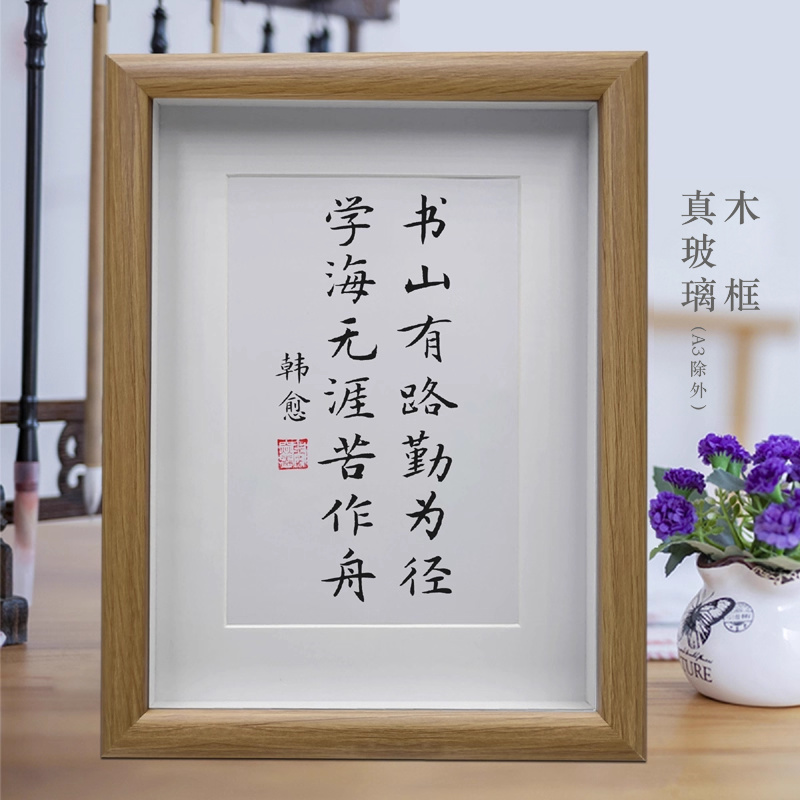 书山有路勤为径
学海无涯苦作舟
韩愈
木框
真玻璃(A3除外)
TURE